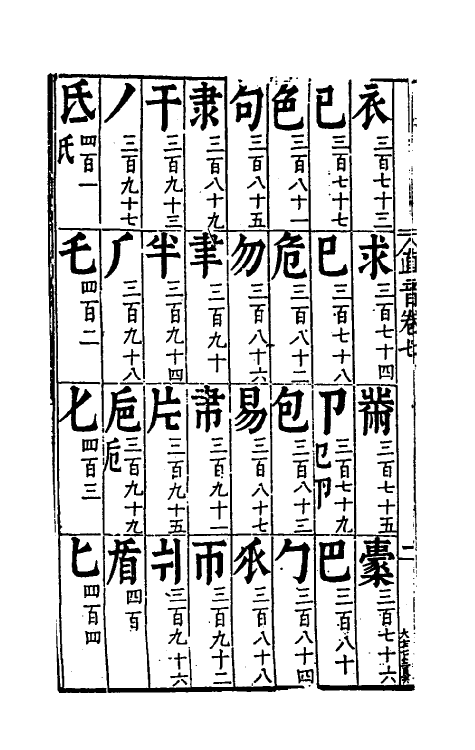 直音卷七 二
衣 三百七十三 求 三百七十四 黹 三百七十五 三百七十六
已 三百七十七 巳 三百七十八 卩 三百七十九 㔾 卪 巴 三百八十
色 三百八十一 危 三百八十二 包 三百八十三 勹 三百八十四
句 三百八十五 勿 三百八十六 易 三百八十七 𠂢 三百八十八
隶 三百八十九 聿 三百九十 三百九十一 帀 三百九十二
干 三百九十三 半 三百九十四 片 三百九十五 三百九十六
丿 三百九十七 厂 三百九十八 巵 三百九十九 卮 盾 四百
氐 四百一 氏 乇 四百二 匕 四百三 匕 四百四